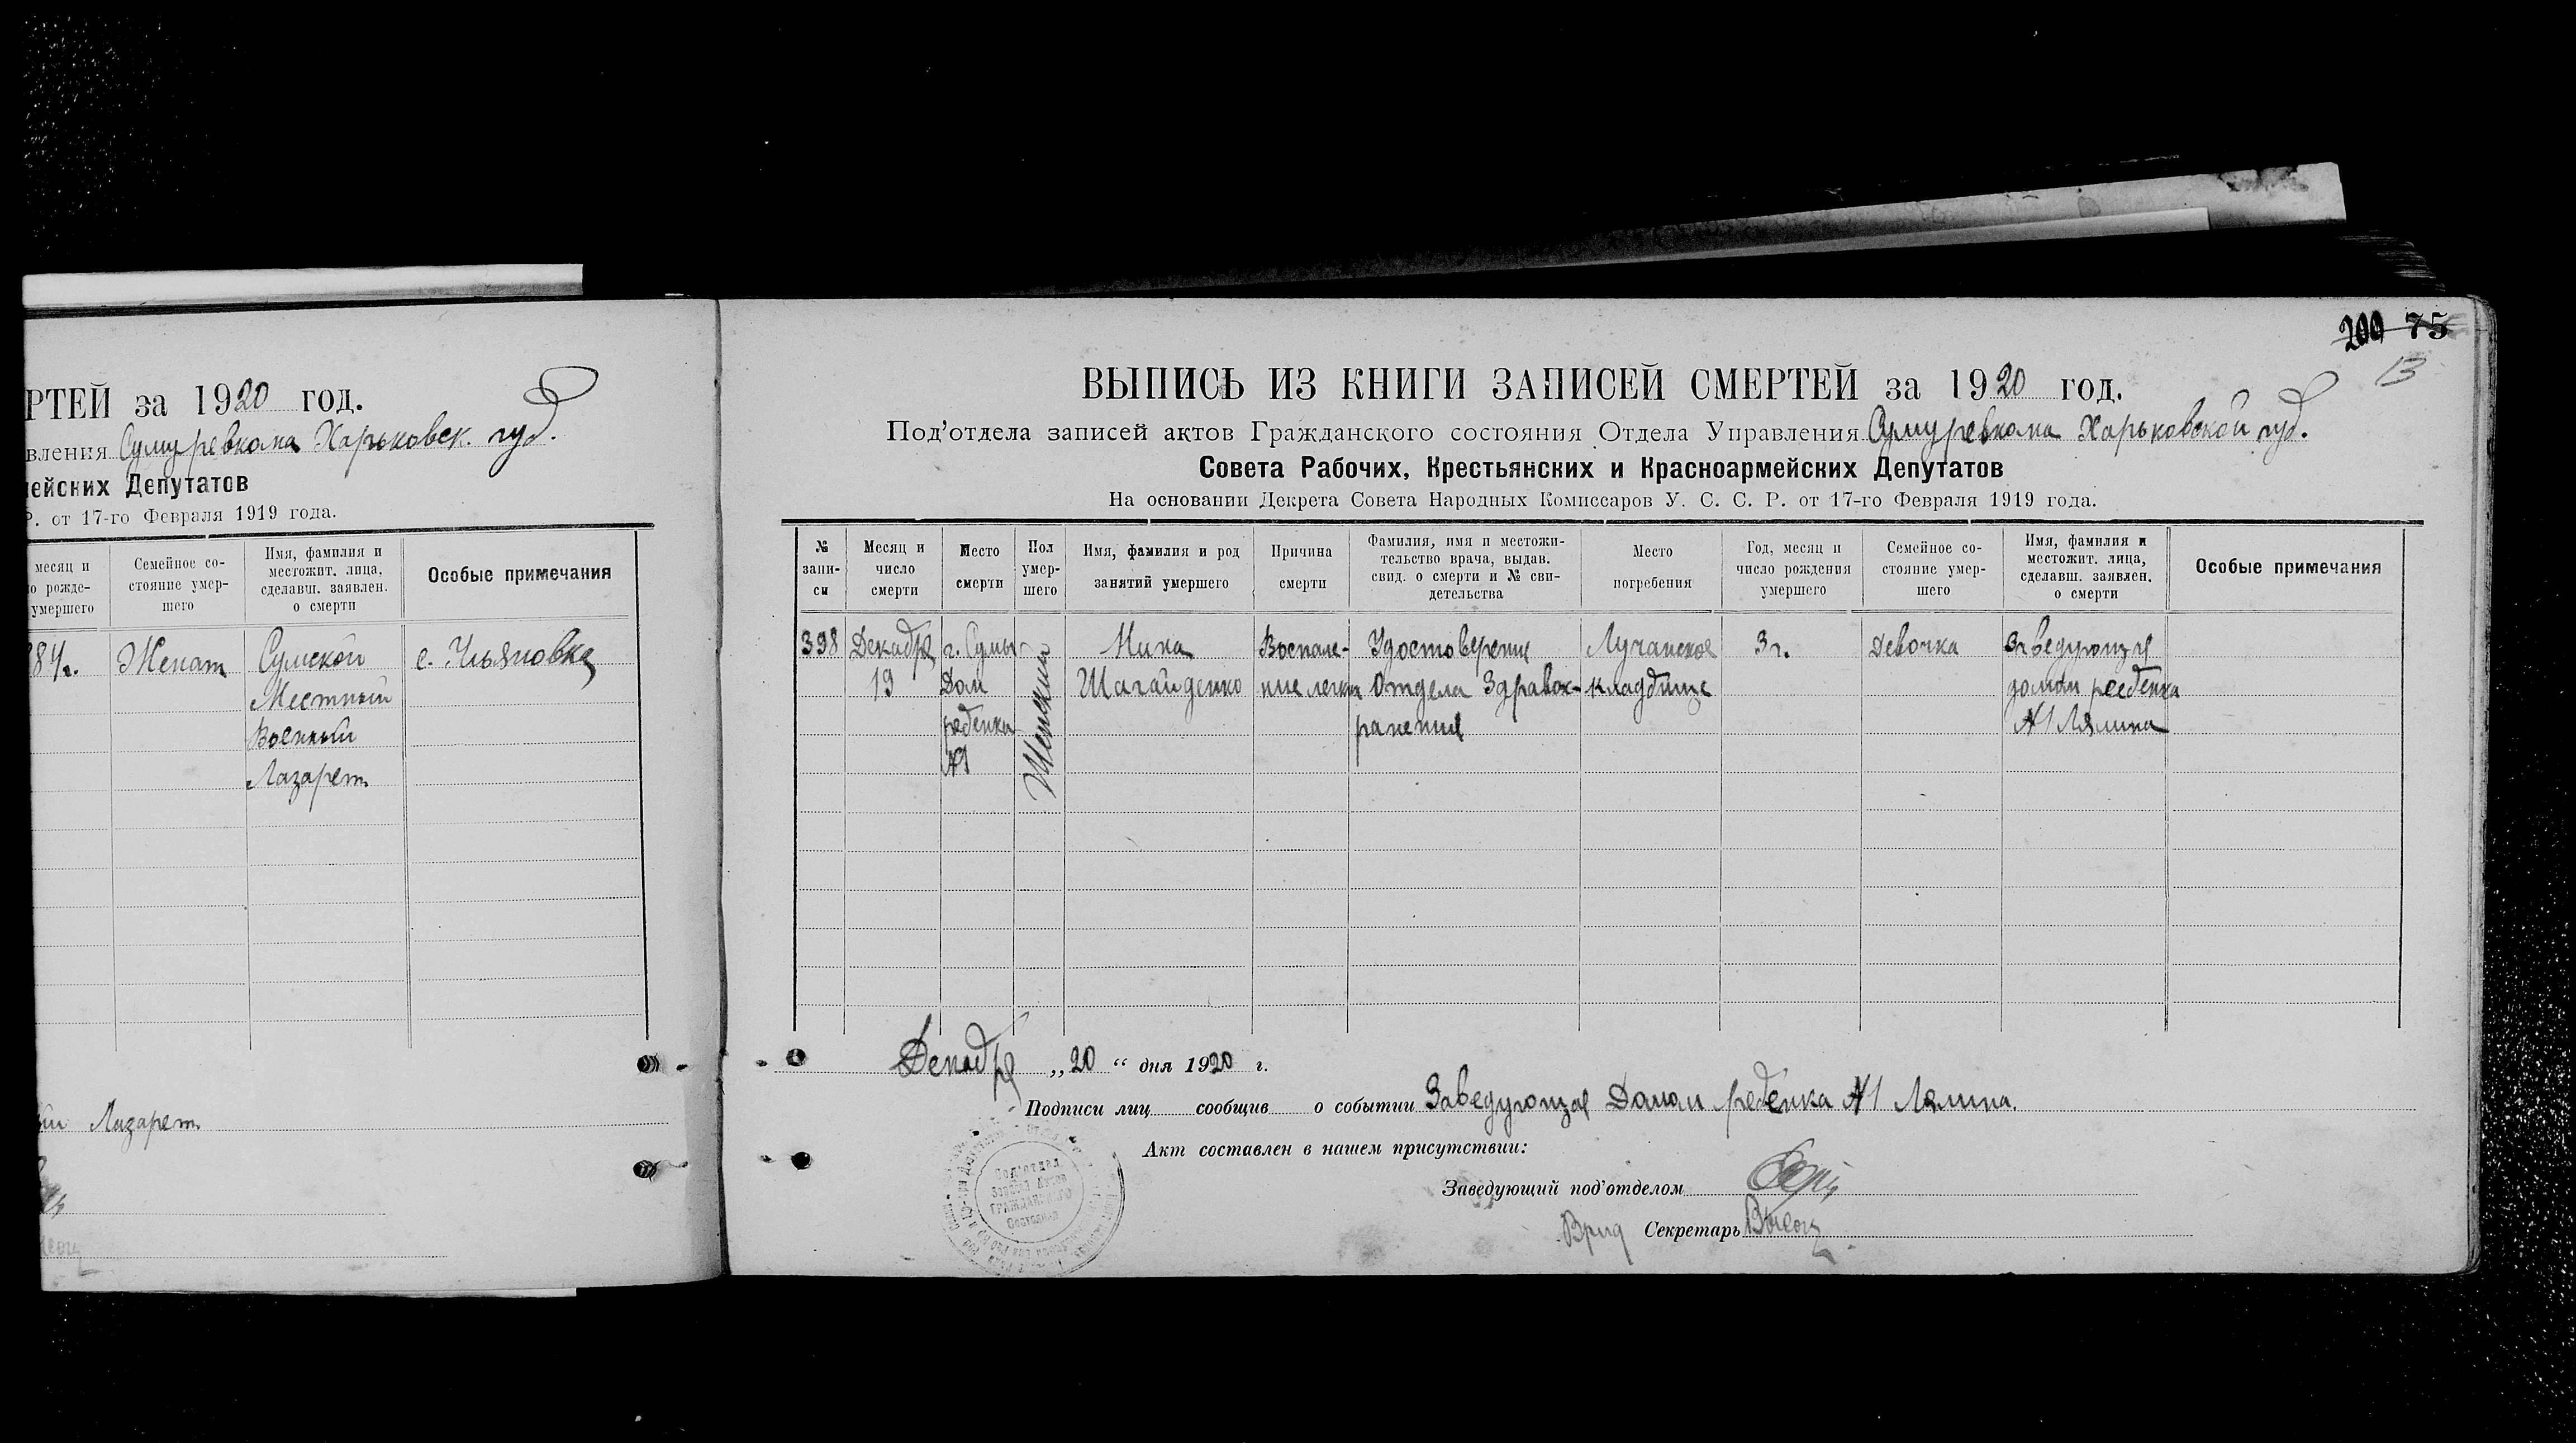 РТЕЙ за 1920 год.
вления Сумуревкома Харьковск. губ.
мейских Депутатов
Р. от 17-го Февраля 1919 года.
месяц и
о рожде-
умершего
Семейное со-
стояние умер-
шего
Имя, фамилия и
местожит. лица,
сделавш. заявлен.
о смерти
Особые примечания
Женат
Сумской
Местный
Военный
Лазарет
с.
Лазарет
200 75
13
ВЫПИСЬ ИЗ КНИГИ ЗАПИСЕЙ СМЕРТЕЙ за 1920 год.
Под'отдела записей актов Гражданского состояния Отдела Управления Сумуревкома Харьковской губ.
Совета Рабочих, Крестьянских и Красноармейских Депутатов
На основании Декрета Совета Народных Комиссаров У. С. С. Р. от 17-го Февраля 1919 года.
№
запи-
си
Месяц и
число
смерти
Место
смерти
Пол
умер-
шего
Имя, фамилия и род
занятий умершего
Причина
смерти
Фамилия, имя и местожи-
тельство врача, выдав.
свид. о смерти и № сви-
детельства
Место
погребения
Год, месяц и
число рождения
умершего
Семейное со-
стояние умер-
шего
Имя, фамилия и
местожит. лица,
сделавш. заявлен.
о смерти
Особые примечания
398
Декабря
19
г. Сумы
Дом
ребенка
№1
Женский
Нина
Шагайденко
Воспале-
ние легких
Удостоверение
Отдела Здравох-
ранения
Лучанское
кладбище
3 г.
Девочка
Заведующая
домом ребенка
№1 Лялина
Декабря „20“ дня 1920 г.
Подписи лиц сообщив о событии Заведующая Домом ребенка №1 Лялина.
Акт составлен в нашем присутствии:
Заведующий под'отделом
Врид Секретарь
Под'отдел
Записи Актов
Гражданского
Состояния